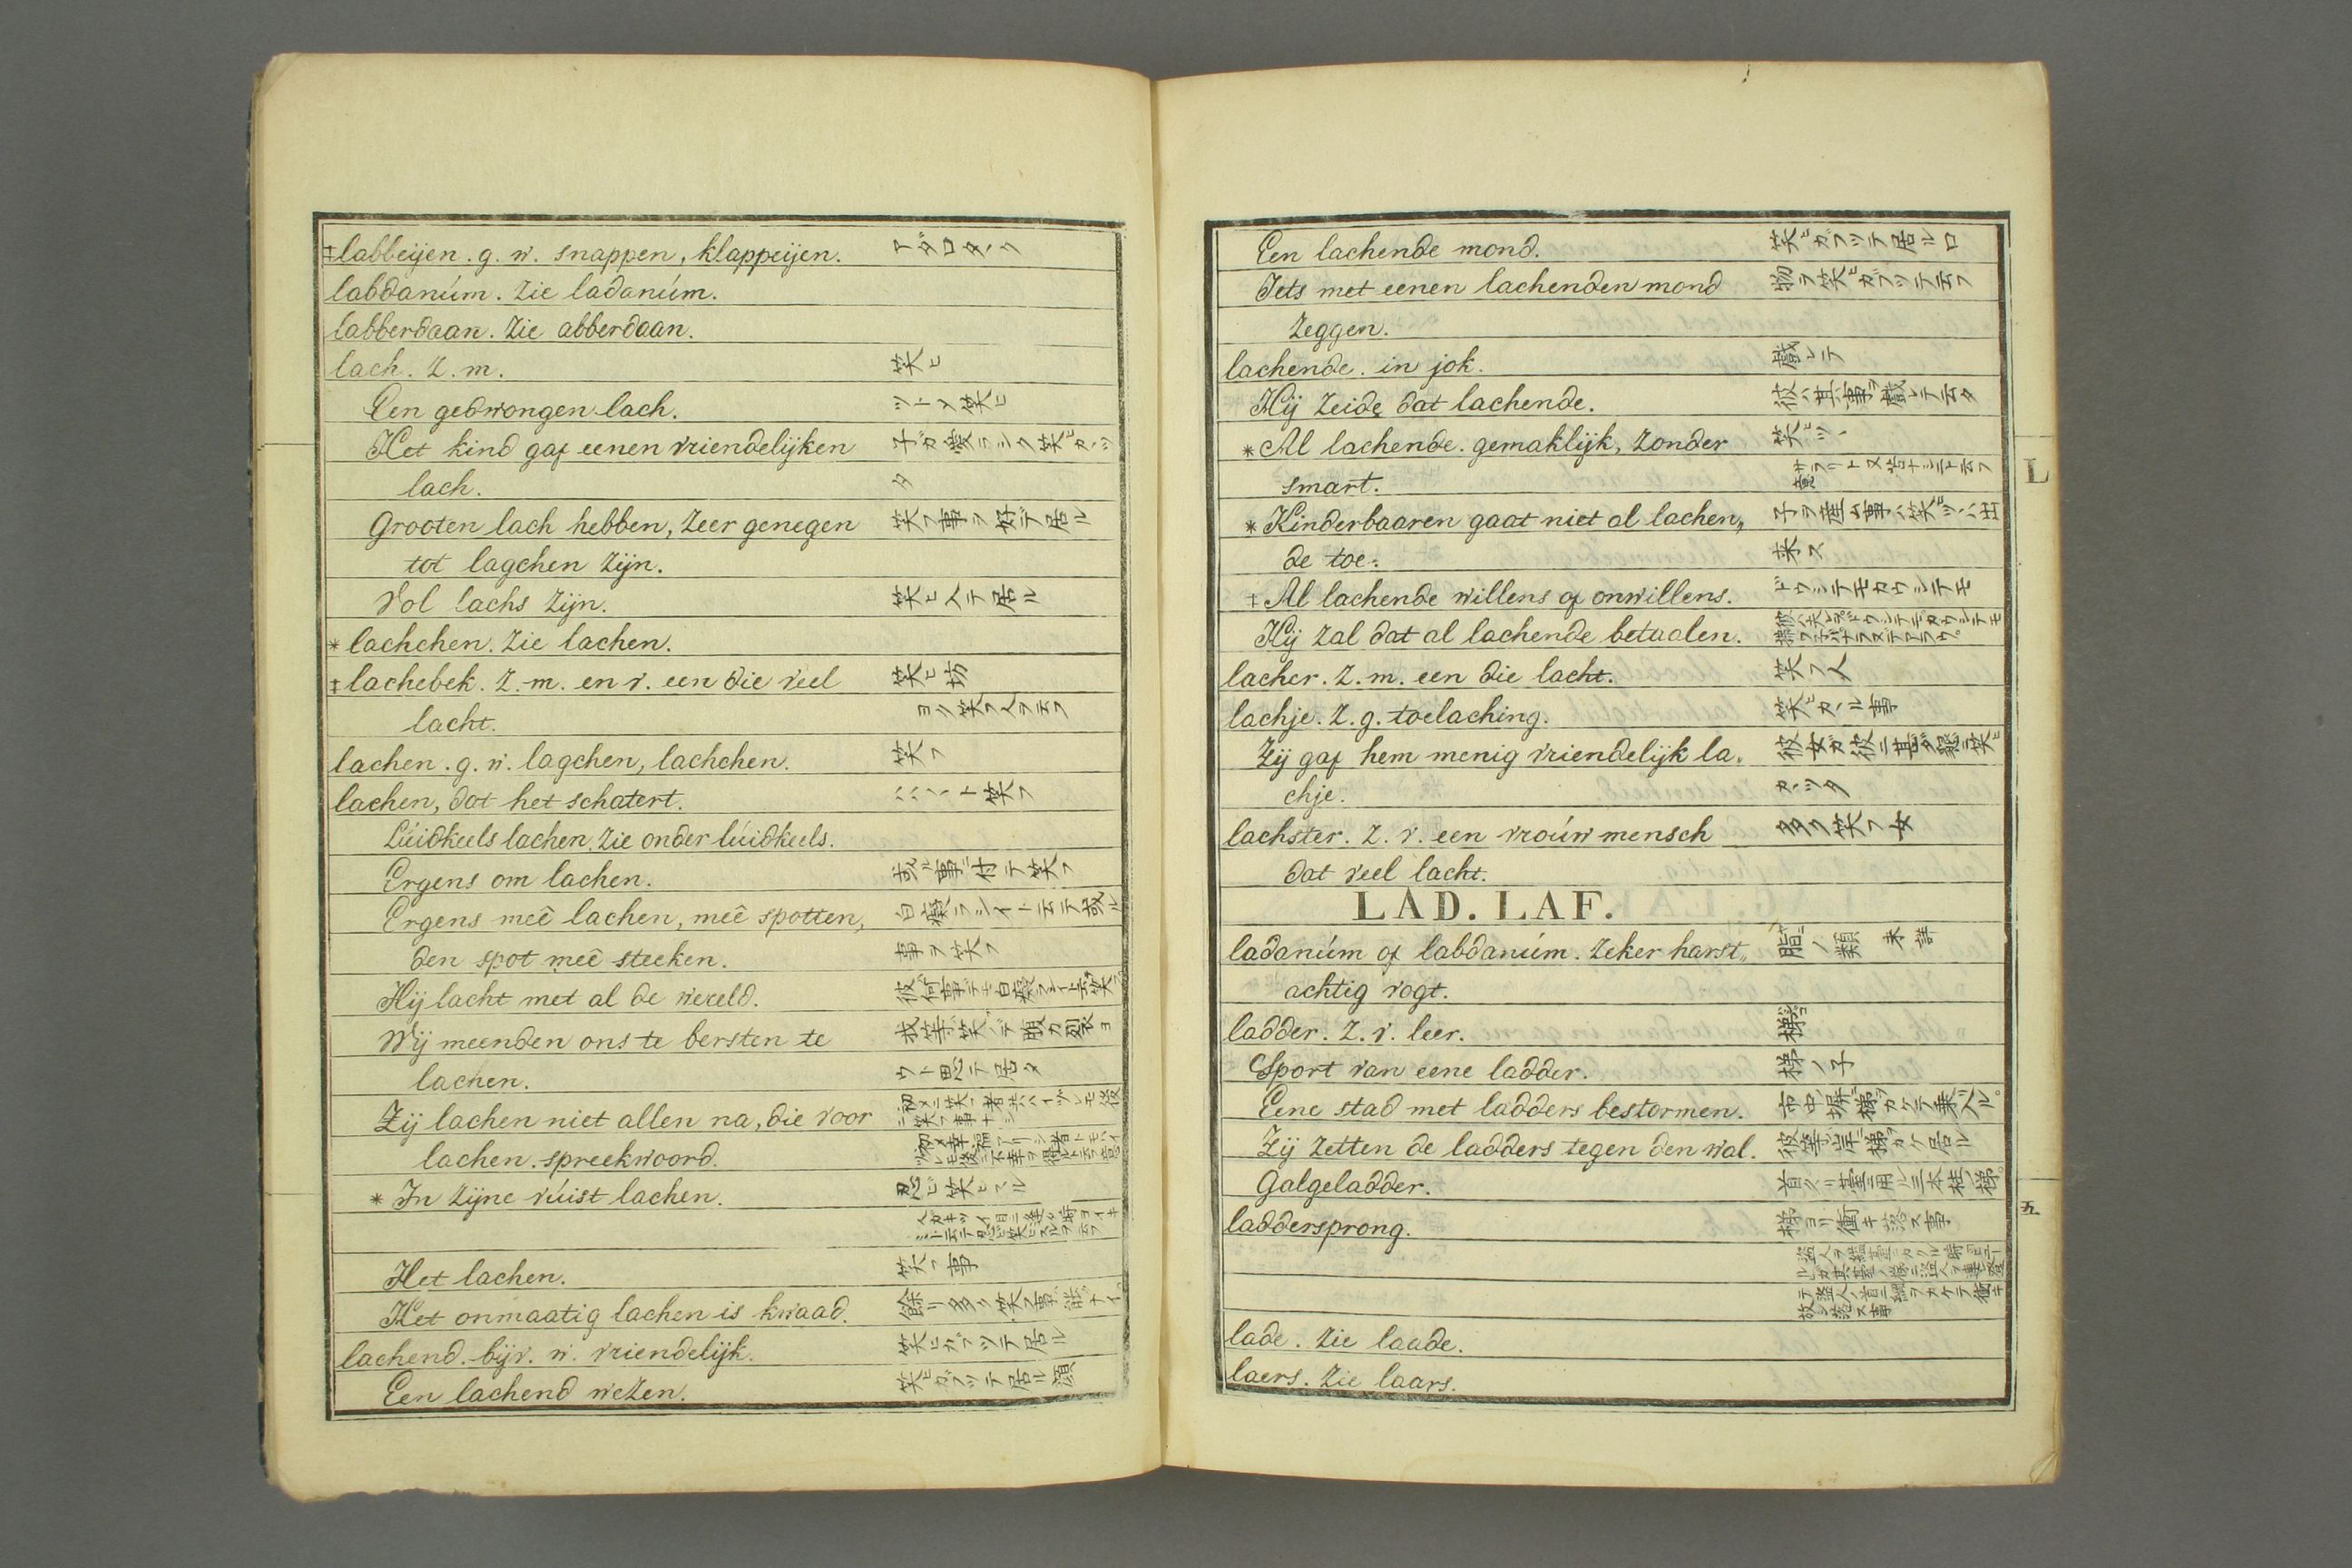 ‡labbeijen. g. w. snappen, klappeijen. アダ口タヽク
labdanúm. Zie ladanúm.
labberdaan. Zie abberdaan.
lach. Z. m. 笑ヒ
Een gedwongen lach. ツトメ笑ヒ
Het kind gaf eenen vriendelijken 子ガ愛ラシク笑ヒカヽツ
lach. タ
Grooten lach hebben, Zeer genegen 笑フ事ヲ好デ居ル
tot lagchen Zijn.
Vol lachs Zijn. 笑ヒ入テ居ル
*lachchen. Zie lachen.
‡lachebek. Z. m. en v. een die veel 笑ヒ坊
lacht. ヨク笑フ人ヲ云フ
lachen. g. w. lagchen, lachchen. 笑フ
lachen, dat het schatert. ハハハト笑フ
Lúidkeels lachen. Zie onder lúidkeels.
Ergens om lachen. 或ル事ニ付テ笑フ
Ergens meê lachen, meê spotten, 白癡ラシイト云テ或ル
den spot meê steeken. 事ヲ笑フ
Hij lacht met al de wereld.
Wij meenden ons te bersten te 我等ハ笑ソデ腹カ裂ヨ
lachen. ウト思テ居タ
Zij lachen niet allen na, die voor 初メニ笑フ者共ハイヅレモ後ニ笑フ事ナシ
lachen. spreekwoord.
* In Zijne vúist lachen. 忍ビ笑ヒスル
Het lachen. 笑フ事
Het onmaatig lachen is kwaad. 餘リ多ク笑フ事ハ能ナイ。
lachend. bijv. w. vriendelijk. 笑ヒガヽツテ居ル
Een lachend weZen. 笑ヒガヽツテ居ル顔
Een lachende mond. 笑ヒガヽツテ居ル口
Iets met eenen lachenden mond 物ヲ笑ヒガヽツテ云フ
Zeggen.
lachende. in jok. 戲レテ
Hij Zeide dat lachende. 彼ハ其事ヲ戲レテ云タ
*Al lachende. gemaklijk, Zonder 笑ヒツヽ
smart.
* Kinderbaaren gaat niet al lachen„ 子ヲ産ム事ハ笑ヒツヽハ出
de toe. 来ヌ
‡Al lachende willens of onwillens. ドウシテモカウシテモ
Hij Zal dat al lachende betaalen.
lacher. Z. m. een die lacht. 笑フ人
lachje. Z. g. toelaching. 笑ヒカヽル事
Zij gaf hem menig vriendelijk la„ 彼女ガ彼ニ甚ダ懇ニ笑ヒ
chje. カヽツタ
lachster. Z. v. een vroúw mensch 多ク笑フ女
dat veel lacht.
LAD. LAF.
ladanúm of labdanúm. Zeker harst„ 脂ノ類 未詳
achtig vogt.
ladder. Z. v. leer. 梯
Sport van eene ladder. 梯ノ子
Eene stad met ladders bestormen. 市中塀ニ梯ヲカケテ乗入ル。
Zij Zetten de ladders tegen den wal. 彼等ハ岸ニ梯ヲカケ居ル
Galgeladder. 首クヽリ臺ニ用ル三本柱ノ梯。
laddersprong. 梯ヨリ衝キ落ス事
lade. Zie laade.
laers. Zie laars.
L
五